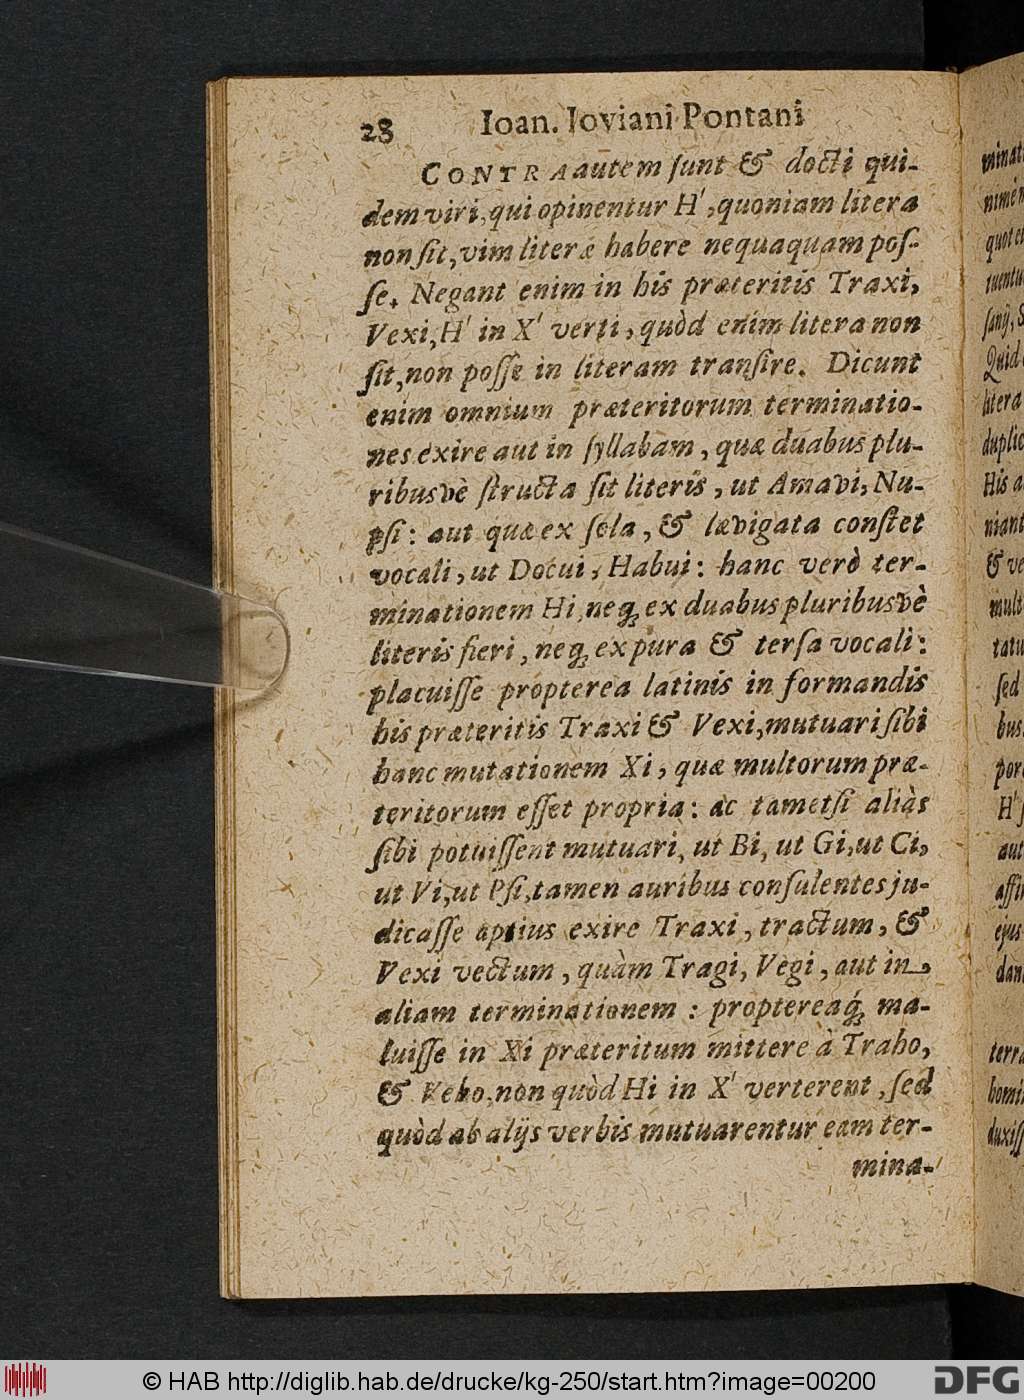 28 Ioan. Ioviani Pontani
CONTRA autem ſunt & docti qui-
dem viri, qui opinentur H', quoniam litera
non ſit, vim literæ habere nequaquam poſ-
ſe. Negant enim in his præteritis Traxi,
Vexi, H' in X' verti, quòd enim litera non
ſit, non poſſe in literam tranſire. Dicunt
enim omnium præteritorum terminatio-
nes exire aut in ſyllabam, quæ duabus plu-
ribusvè ſtructa ſit literis, ut Amavi, Nu-
pſi: aut quæ ex ſola, & lævigata conſtet
vocali, ut Docui, Habui: hanc verò ter-
minationem Hi, neq; ex duabus pluribusvè
literis fieri, neq; ex pura & terſa vocali:
placuiſſe propterea latinis in formandis
his præteritis Traxi & Vexi, mutuari ſibi
hanc mutationem Xi, quæ multorum præ-
teritorum eſſet propria: ac tametſi aliàs
ſibi potuiſſent mutuari, ut Bi, ut Gi, ut Ci,
ut Vi, ut Pſi, tamen auribus conſulentes ju-
dicaſſe aptius exire Traxi, tractum, &
Vexi vectum, quàm Tragi, Vegi, aut in
aliam terminationem: proptereaq́; ma-
luiſſe in Xi præteritum mittere à Traho,
& Veho, non quòd Hi in X' verterent, ſed
quòd ab alijs verbis mutuarentur eam ter-
mina-
© HAB http://diglib.hab.de/drucke/kg-250/start.htm?image=00200
DFG